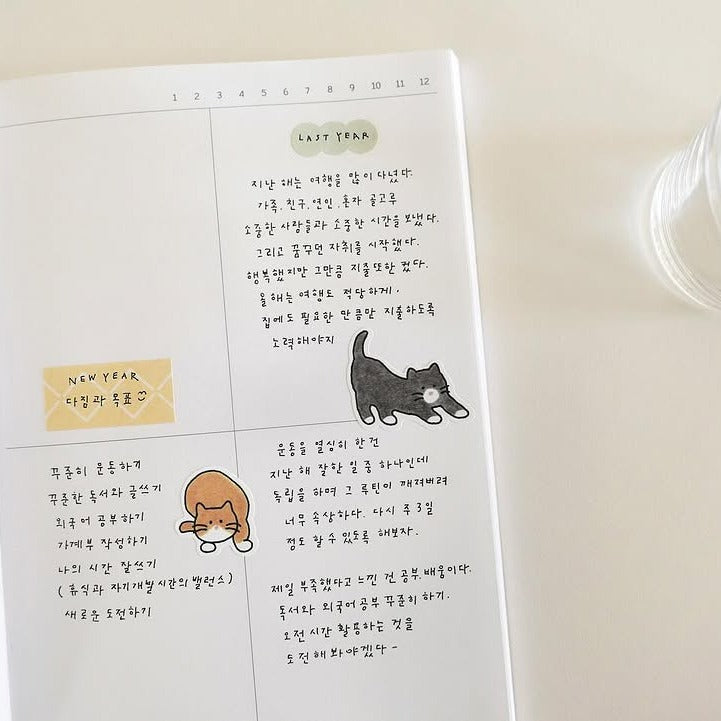 1 2 3 4 5 6 7 8 9 10 11 12
LAST YEAR
지난 해는 여행을 많이 다녔다.
가족, 친구, 연인, 혼자 골고루
소중한 사람들과 소중한 시간을 보냈다.
그리고 꿈꾸던 자취를 시작했다.
행복했지만 그만큼 지출또한 컸다.
올해는 여행도 적당하게.
집에도 필요한 만큼만 지출하도록
노력해야지
NEW YEAR
다짐과 목표
꾸준히 운동하기
꾸준한 독서와 글쓰기
외국어 공부하기
가계부 작성하기
나의 시간 잘쓰기
(휴식과 자기개발시간의 밸런스)
새로운 도전하기
운동을 열심히 한건
지난 해 잘한 일 중 하나인데
독립을 하며 그 루틴이 깨져버려
너무 속상하다. 다시 주3일
정도 할 수 있도록 해보자.
제일 부족했다고 느낀 건 공부.배움이다.
독서와 외국어공부 꾸준히 하기.
오전시간 활용하는 것을
도전해봐야겠다-